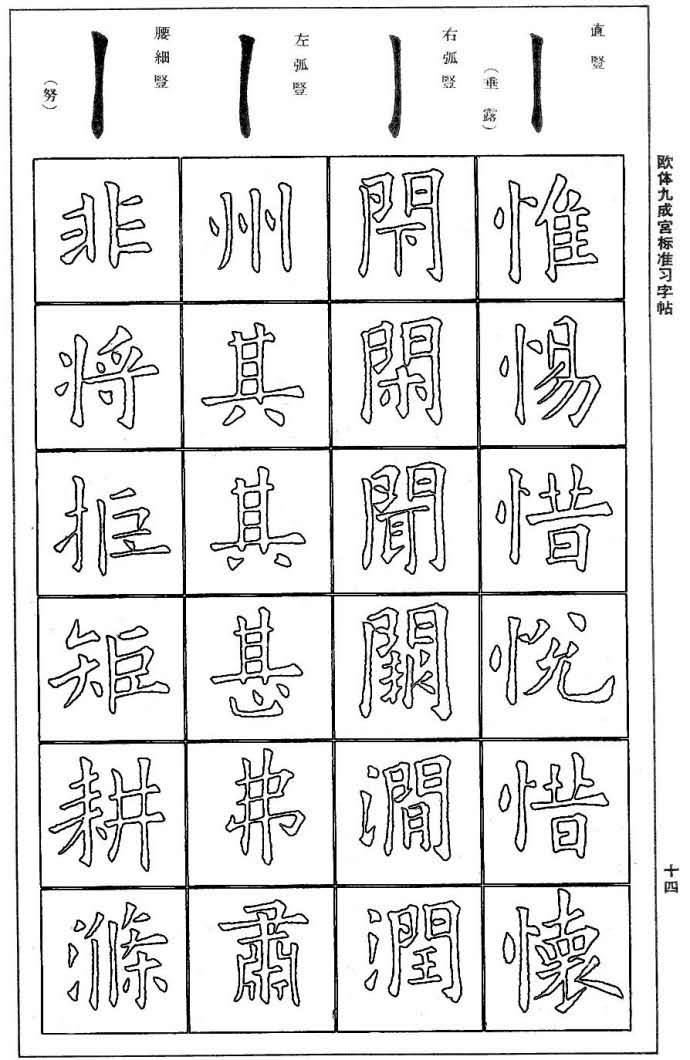 欧体九成宫标准习字帖
十四
直竪
（垂露）
右弧竪
左弧竪
腰細竪
（努）
惟惕惜悦惜懷
閇閑聞闕澗潤
州其其甚弗肅
非将拒矩耕滌